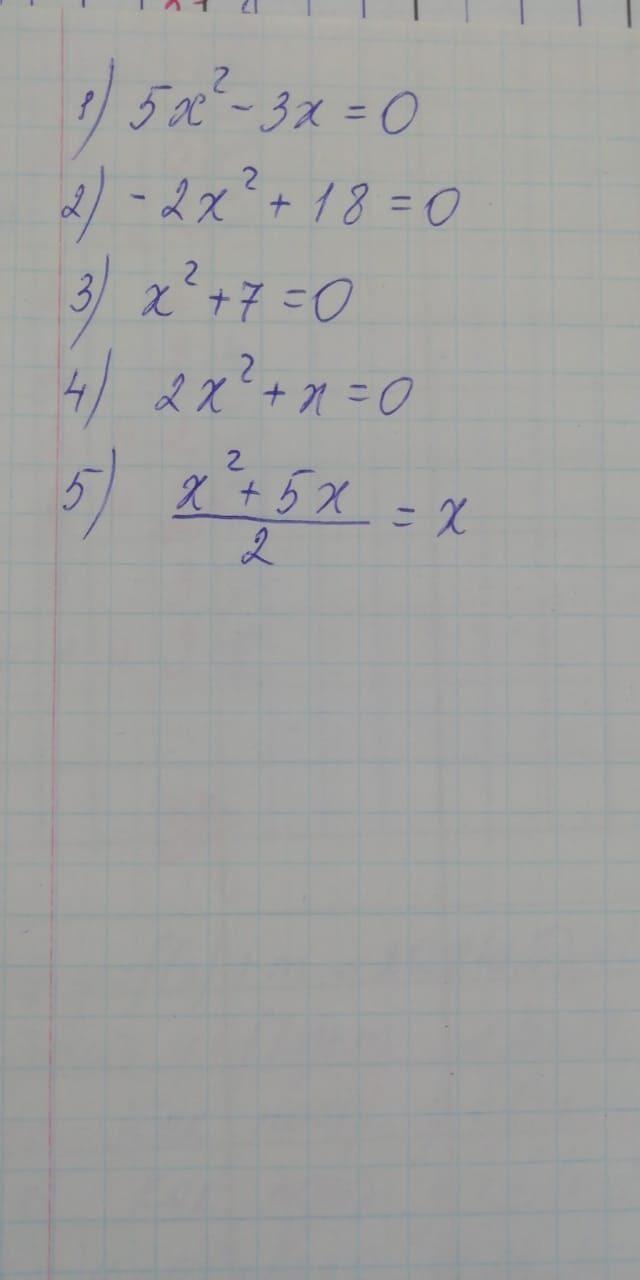 1) 5x² - 3x = 0
2) - 2x² + 18 = 0
3) x² + 7 = 0
4) 2x² + x = 0
5) (x² + 5x)/2 = x